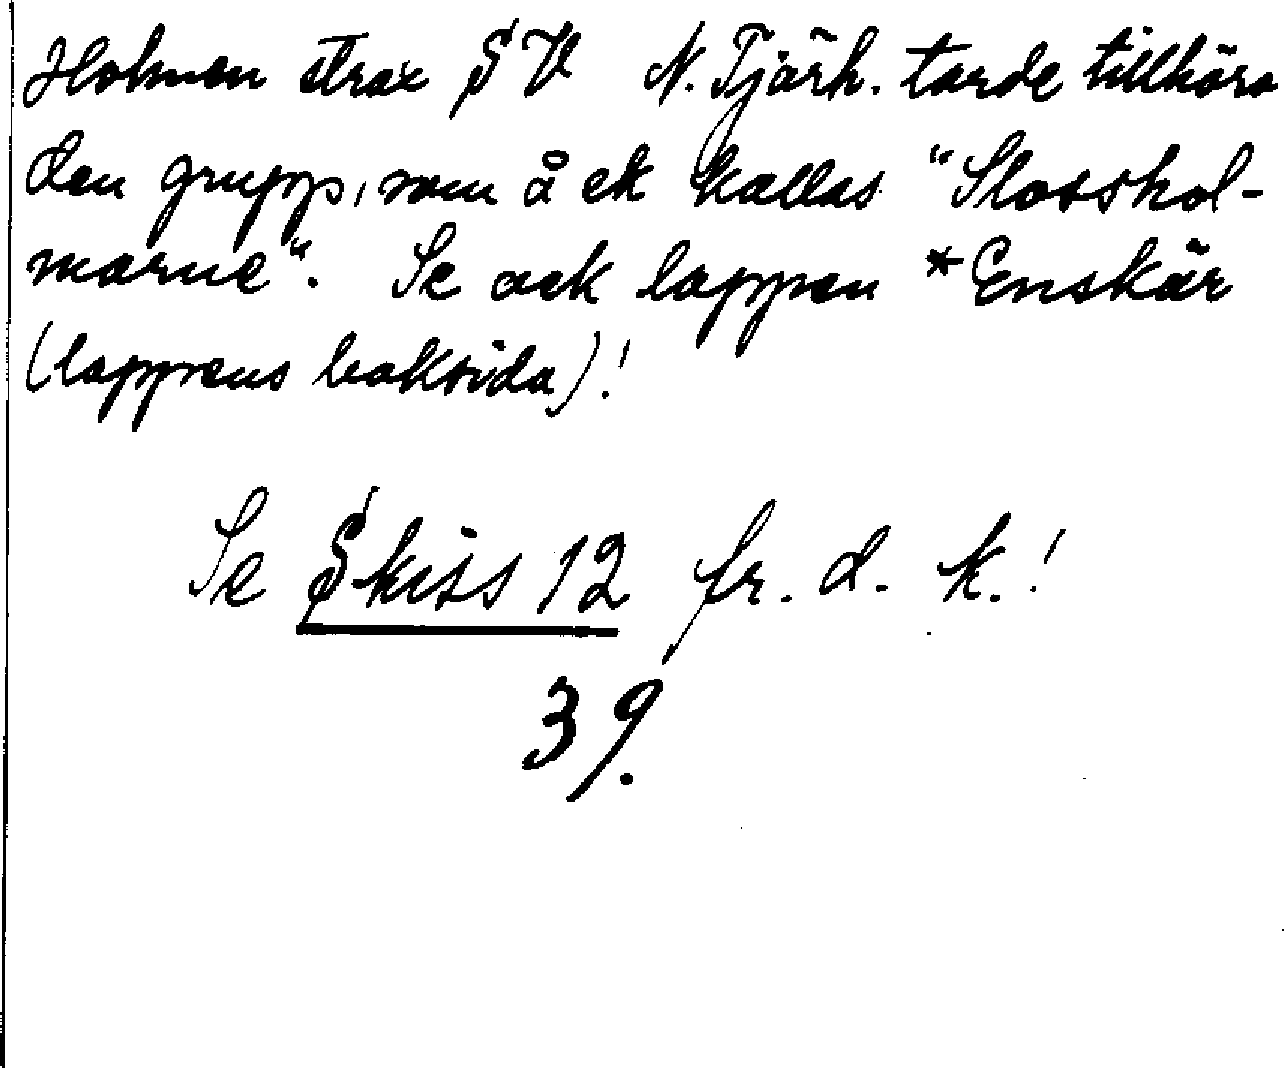 Holmen strax SV N. Tjärh. torde tillhöra
den grupp, som å ek kallas "Slosshol-
marne". Se ock lappen *Enskär
(lappens baksida)!
Se Skiss 12 fr. d. k.!
39.